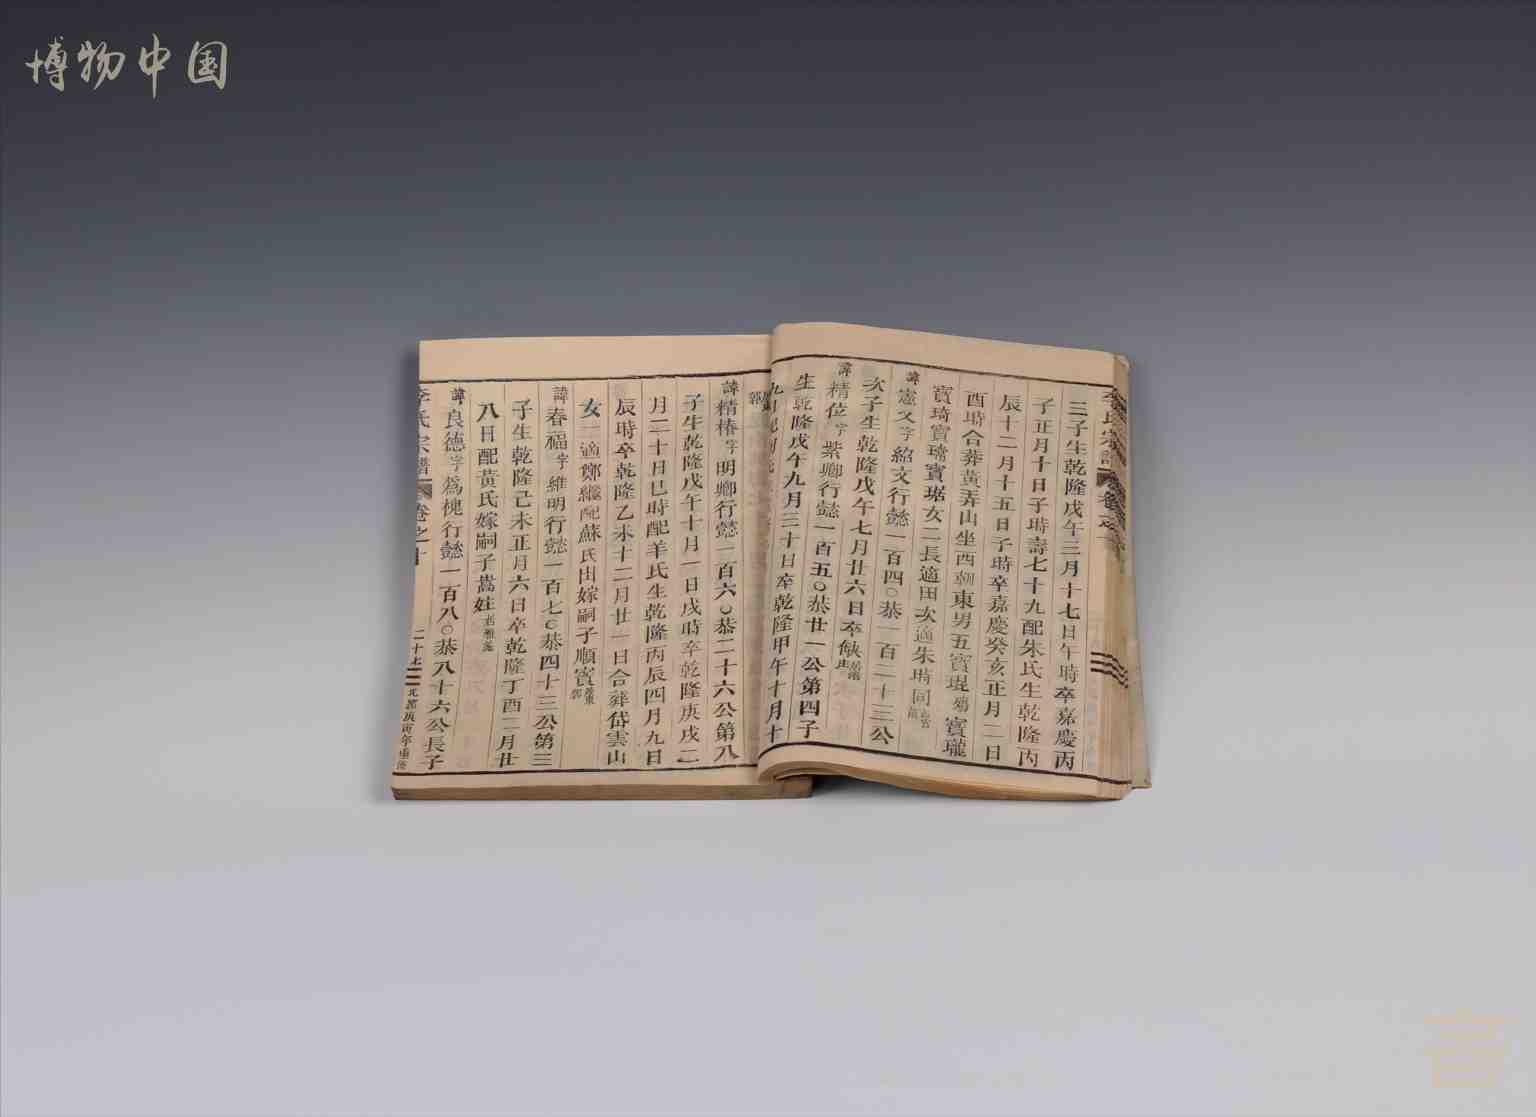 博物中国
三子生乾隆戊午三月十七日午時卒嘉慶丙
子正月十日子時壽七十九配朱氏生乾隆丙
辰十二月十五日子時卒嘉慶癸亥正月二日
酉時合葬黃弄山坐西朝東男五寶琨殤寶瓏
寶琦寶璿寶琚女二長適田次適朱時同
諱憲文字紹文行懿一百四〇恭一百二十三公
次子生乾隆戊午七月廿六日卒缺
諱精位字紫卿行懿一百五〇恭廿一公第四子
生乾隆戊午九月三十日卒乾隆甲午十月十
諱精椿字明卿行懿一百六〇恭二十六公第八
子生乾隆戊午十月一日戌時卒乾隆庚戌二
月二十日巳時配羊氏生乾隆丙辰四月九日
辰時卒乾隆乙未十二月廿一日合葬岱雲山
女一適鄭繼配蘇氏出嫁嗣子順寶
諱春福字維明行懿一百七〇恭四十三公第三
子生乾隆己未正月六日卒乾隆丁酉二月廿
八日配黃氏嫁嗣子嵩娃
諱良德字為槐行懿一百八〇恭八十六公長子
李氏宗譜 卷之十 二十七 庚寅年重修